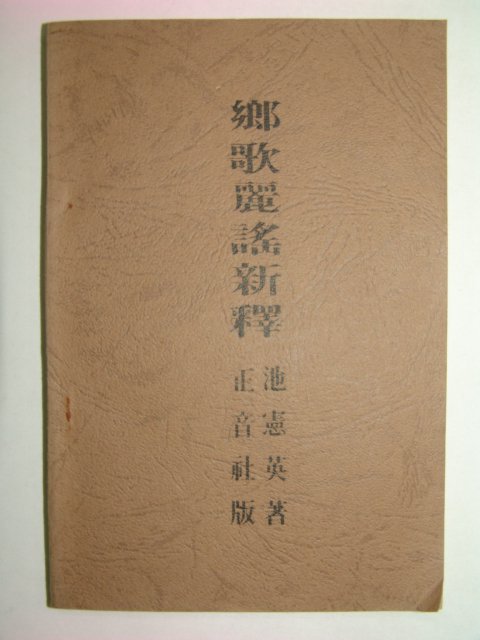 鄕歌麗謠新釋
池憲英著
正音社版